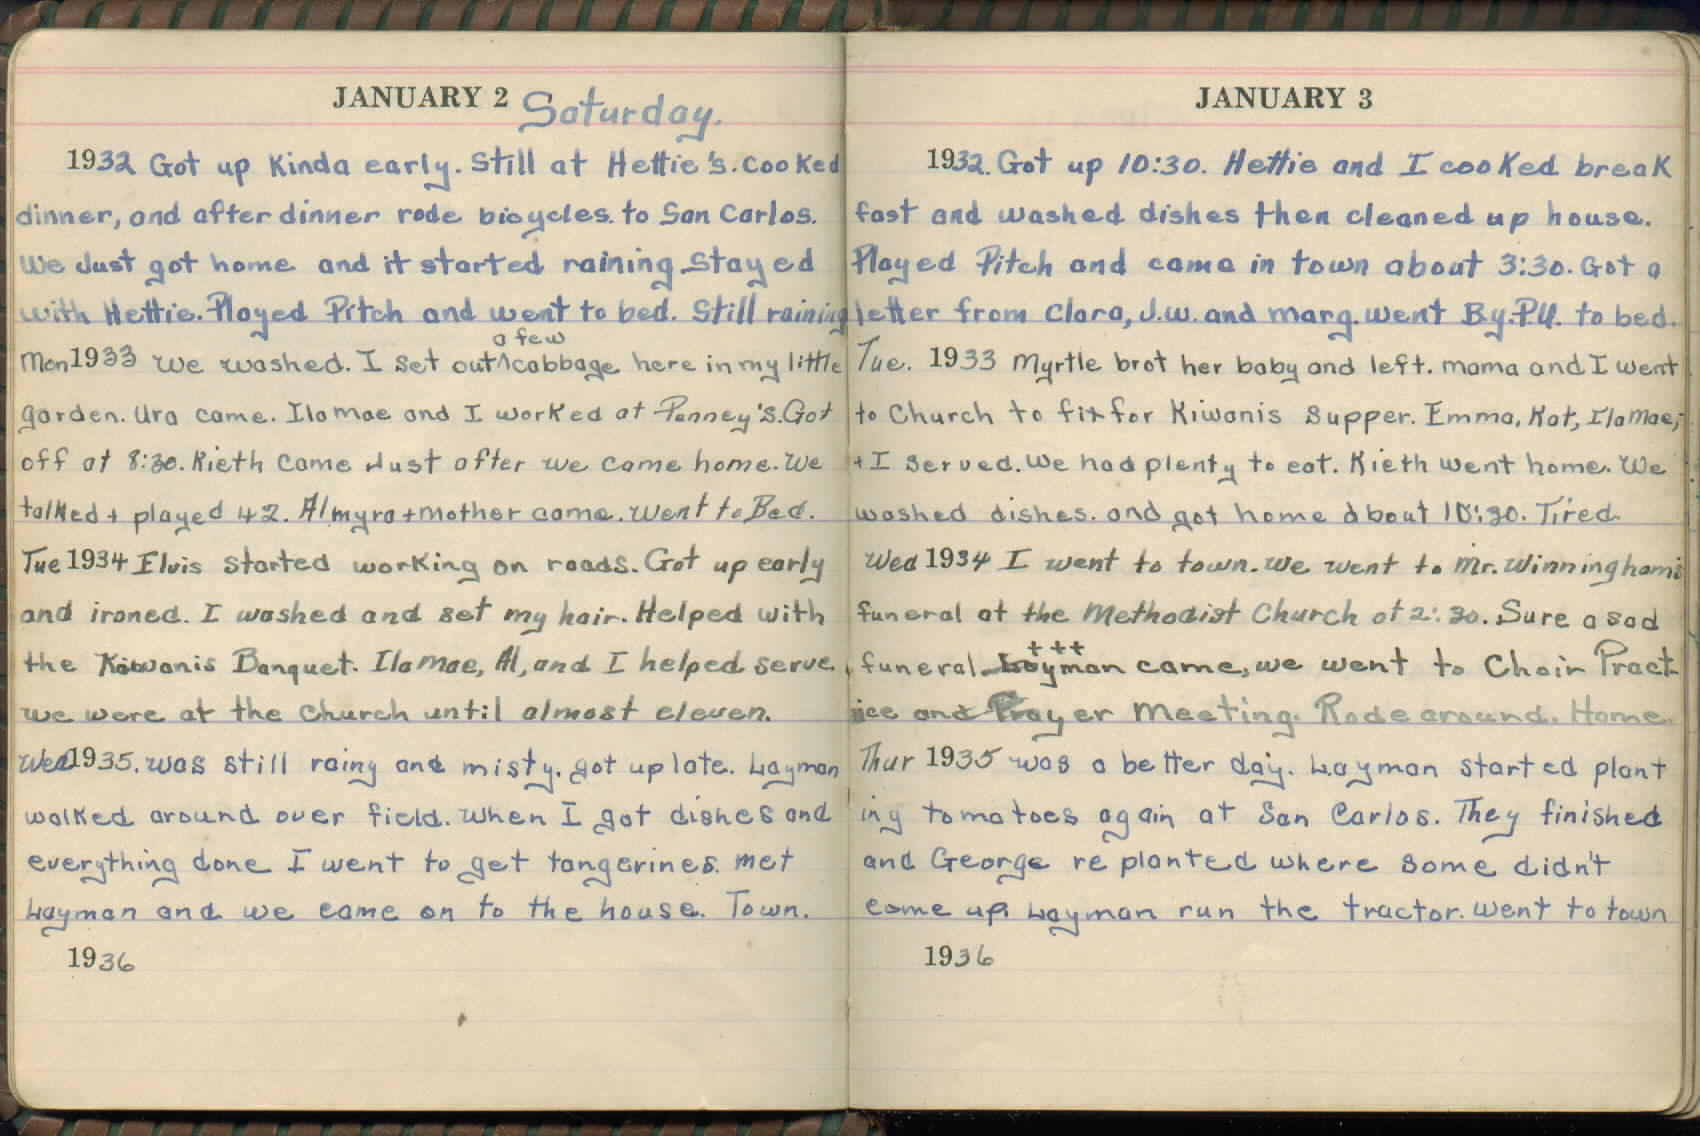 JANUARY 2 Saturday.
1932 Got up Kinda early. Still at Hettie's. Cooked
dinner, and after dinner rode bicycles. to San Carlos.
We Just got home and it started raining. Stayed
with Hettie. Played Pitch and went to bed. Still raining
a few
Mon 1933 We washed. I set out ^ cabbage here in my little
garden. Ura came. Ila Mae and I worked at Penney's. Got
off at 8:30. Kieth came Just after we came home. We
talked + played 42. Almyra + mother came. Went to Bed.
Tue 1934 Elvis started working on roads. Got up early
and ironed. I washed and set my hair. Helped with
the Kiwanis Banquet. Ila Mae, Al, and I helped serve.
we were at the Church until almost eleven.
Wed 1935. was still rainy and misty. got up late. Layman
walked around over field. When I got dishes and
everything done I went to get tangerines. met
Layman and we came on to the house. Town.
1936
JANUARY 3
1932. Got up 10:30. Hettie and I cooked break
fast and washed dishes then cleaned up house.
Played Pitch and came in town about 3:30. Got a
letter from Clara, J.W. and Marg. went B.Y.P.U. to bed.
Tue. 1933 Myrtle brot her baby and left. mama and I went
to Church to fix for Kiwanis Supper. Emma, Kat, Ila Mae,
+ I served. We had plenty to eat. Kieth went home. We
washed dishes. and got home about 10:30. Tired.
Wed 1934 I went to town. We went to Mr. Winninghams
funeral at the Methodist Church at 2:30. Sure a sad
+++
funeral. Layman came, we went to Choir Pract
ice and Prayer Meeting. Rode around. Home.
Thur 1935 was a better day. Layman started plant
ing tomatoes again at San Carlos. They finished
and George replanted where some didn't
come up. Layman run the tractor. Went to town
1936